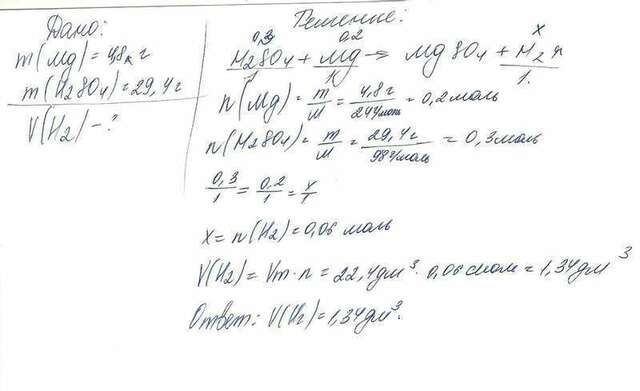 Дано:
m(Mg)=4,8 г
m(H2SO4)=29,4 г
V(H2)-?
Решение:
0,3 0,2 x
H2SO4 + Mg → MgSO4 + H2 ↑
1 1 1.
n(Mg) = m/M = 4,8 г/24 г/моль = 0,2 моль
n(H2SO4) = m/M = 29,4 г/98 г/моль = 0,3 моль
0,3/1 = 0,2/1 = x/1
x = n(H2) = 0,06 моль
V(H2) = Vm·n = 22,4 дм³ · 0,06 моль = 1,34 дм³
Ответ: V(H2) = 1,34 дм³.